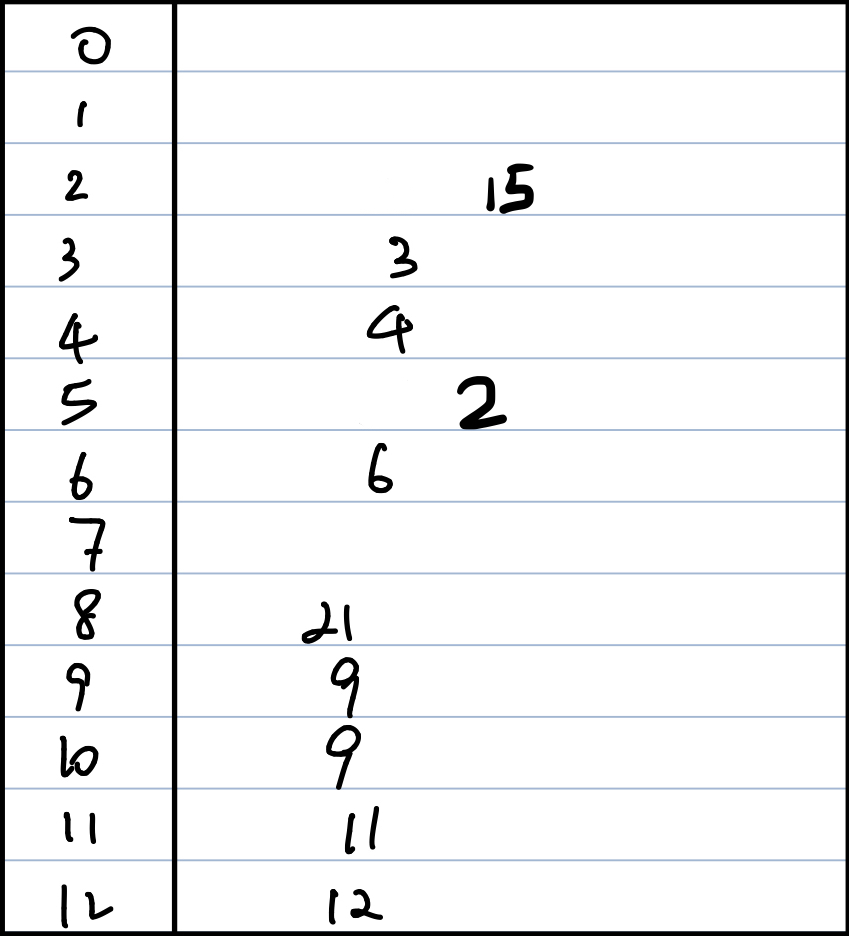 0
1
2 15
3 3
4 4
5 2
6 6
7
8 21
9 9
10 9
11 11
12 12